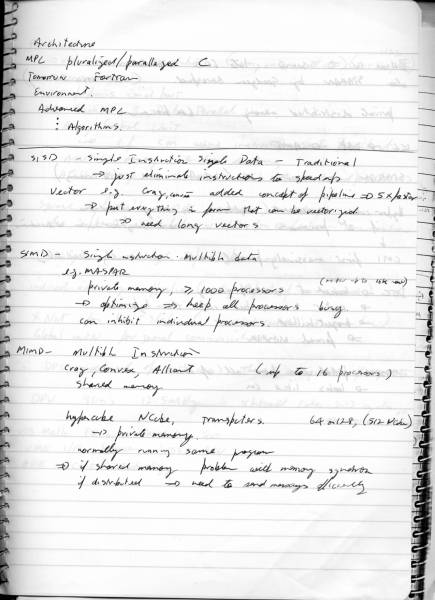 Architecture
MPL pluralized/parallelized C
Tomorrow Fortran
Environment.
Advanced MPL
⋮ Algorithms.
SISD - Single Instruction Single Data - Traditional
→ just eliminate instructions to speed up
Vector e.g. Cray, added concept of pipeline ⇒ 5x faster
→ put everything in form that can be vectorized
⇒ need long vectors
SIMD - Single instruction. Multiple data
e.g. MASPAR
private memory, ≥ 1000 processors
→ optimize ⇒ keep all processors busy
can inhibit individual processors.
MIMD - Multiple Instruction
Cray, Convex, Alliant (up to 16 processors)
shared memory
hypercube NCube, Transputers. 64 or 128, (512 NCube)
→ private memory.
normally running same program
⇒ if shared memory problem with memory synchron
if distributed → need to send messages efficiently